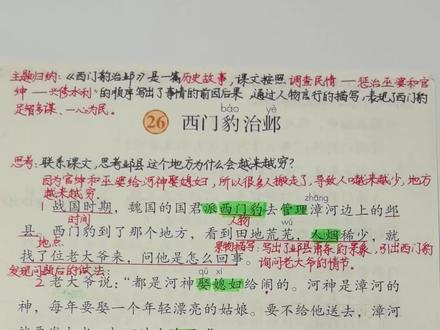 主题归纳：《西门豹治邺》是一篇历史故事，课文按照调查民情—惩治巫婆和官
绅—兴修水利的顺序写出了事情的前因后果，通过人物言行的描写，表现了西门豹
足智多谋、一心为民。
bào yè
26 西门豹治邺
思考：联系课文，思考邺县这个地方为什么会越来越穷？
因为官绅和巫婆给河神娶媳妇，所以很多人搬走了，导致人口越来越少，地方
越来越穷。
zhāng
1 战国时期，魏国的国君派西门豹去管理漳河边上的邺
时间 人物 wú
县。西门豹到了那个地方，看到田地荒芜，人烟稀少，就
地点 景物描写：写出了邺县萧条的景象，引出西门豹
找了位老大爷来，问他是怎么回事。 询问老大爷的情节。
发现问题后的做法：
qǔ xí
2 老大爷说：“都是河神娶媳妇给闹的。河神是漳河的
神，每年要娶一个年轻漂亮的姑娘。要不给他送去，漳河